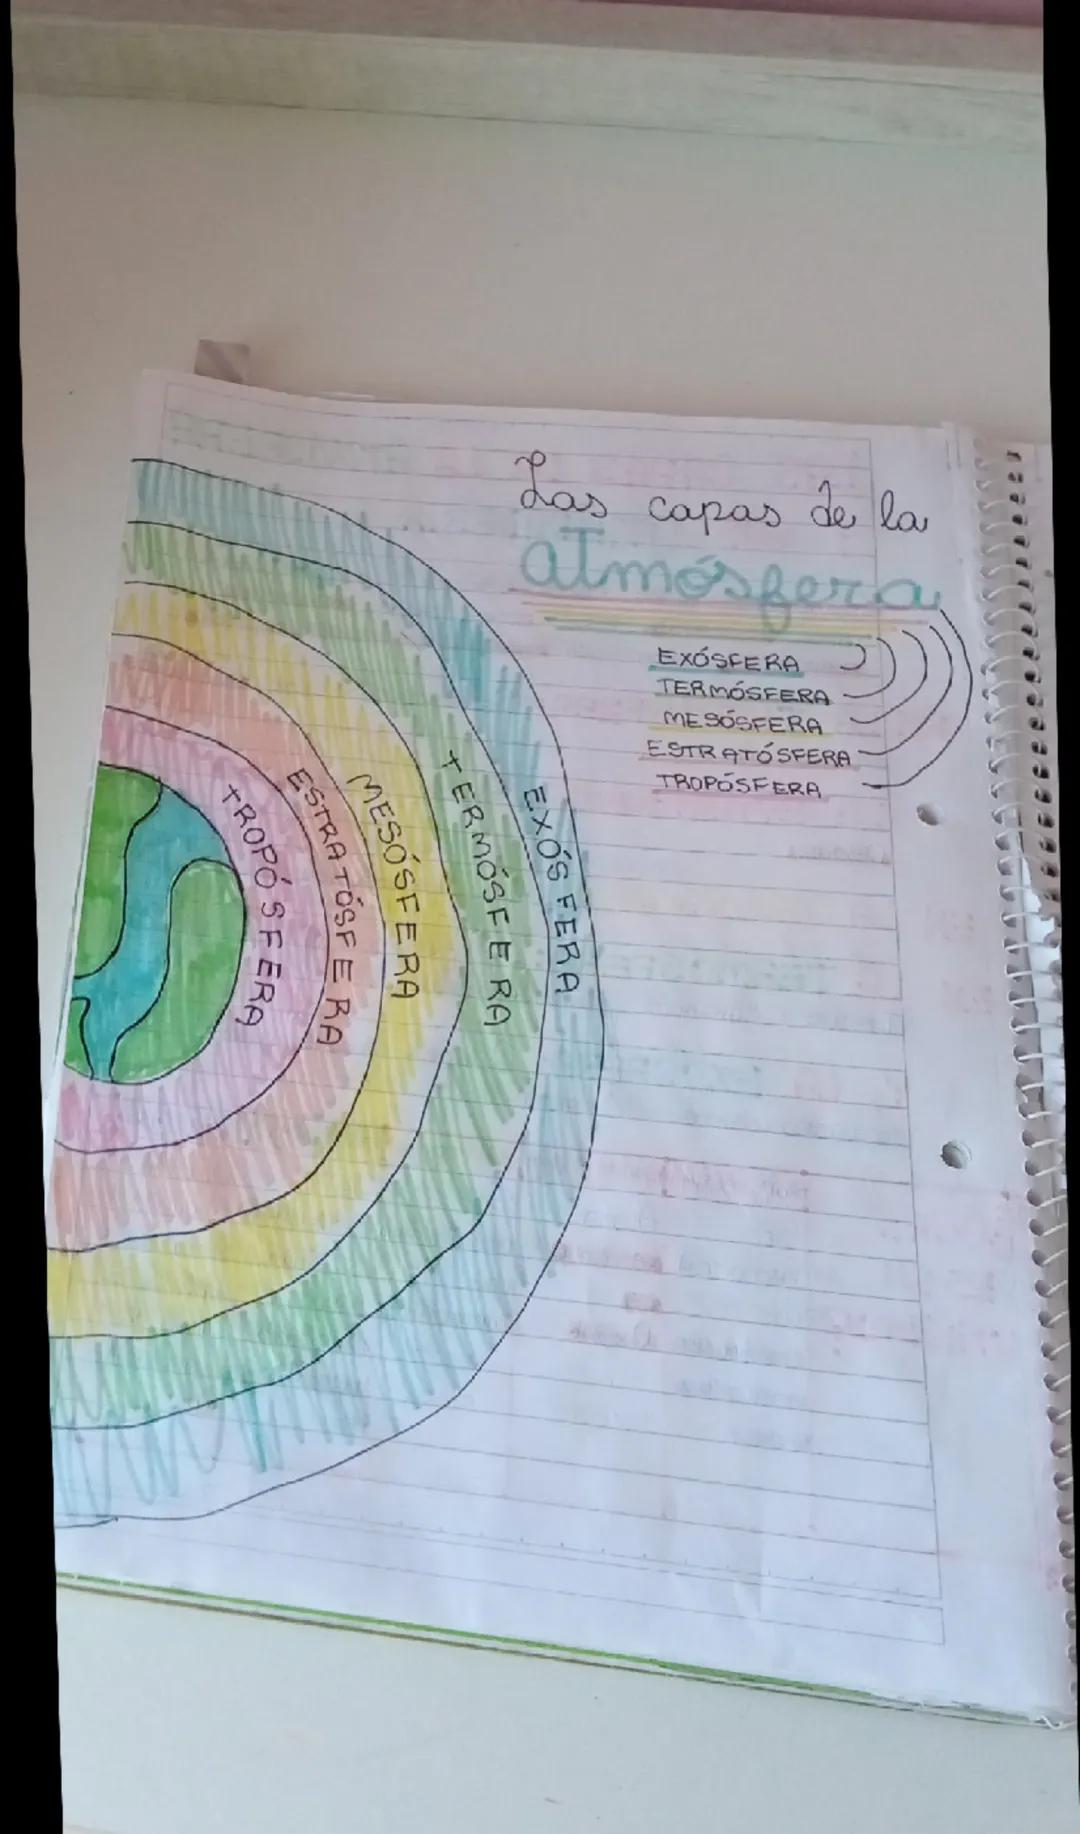 Las capas de la
atmósfera
EXÓSFERA
TERMÓSFERA
MESÓSFERA
ESTRATÓSFERA
TROPÓSFERA
TROPÓSFERA
ESTRATÓSFERA
MESÓSFERA
TERMÓSFERA
EXÓSFERA